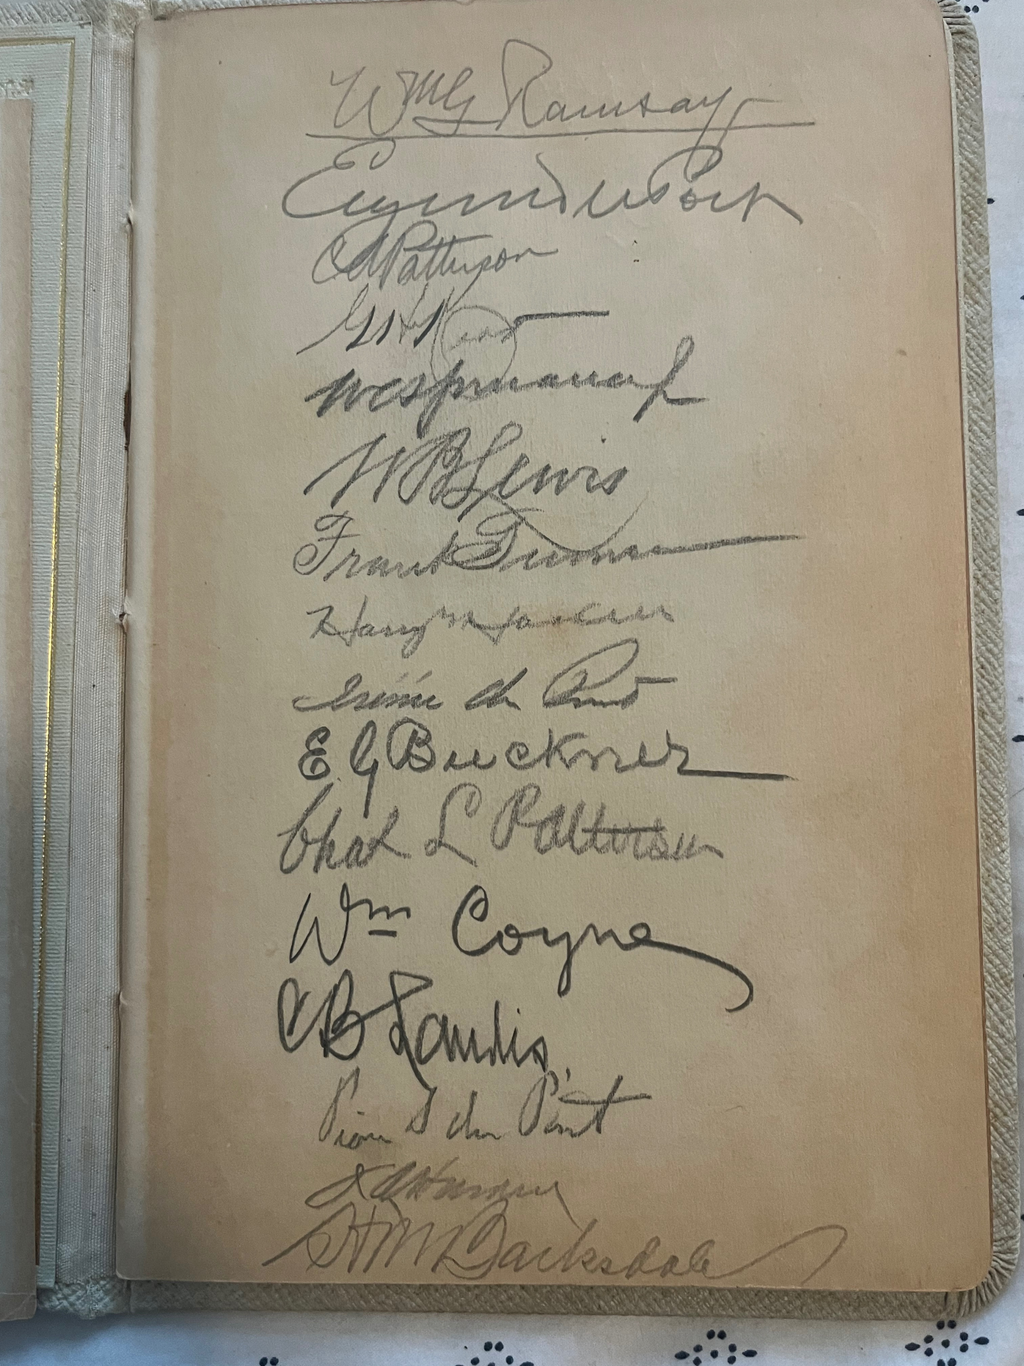 Wm G Ramsay
Eugene du Pont
C A Patterson
G H Kerr
W C Spruance Jr
W B Lewis
Frank
Harry
Irénée du Pont
E. G Buckner
Chas L Patterson
Wm Coyne
C B Landis
Pierre S du Pont
H M Barksdale